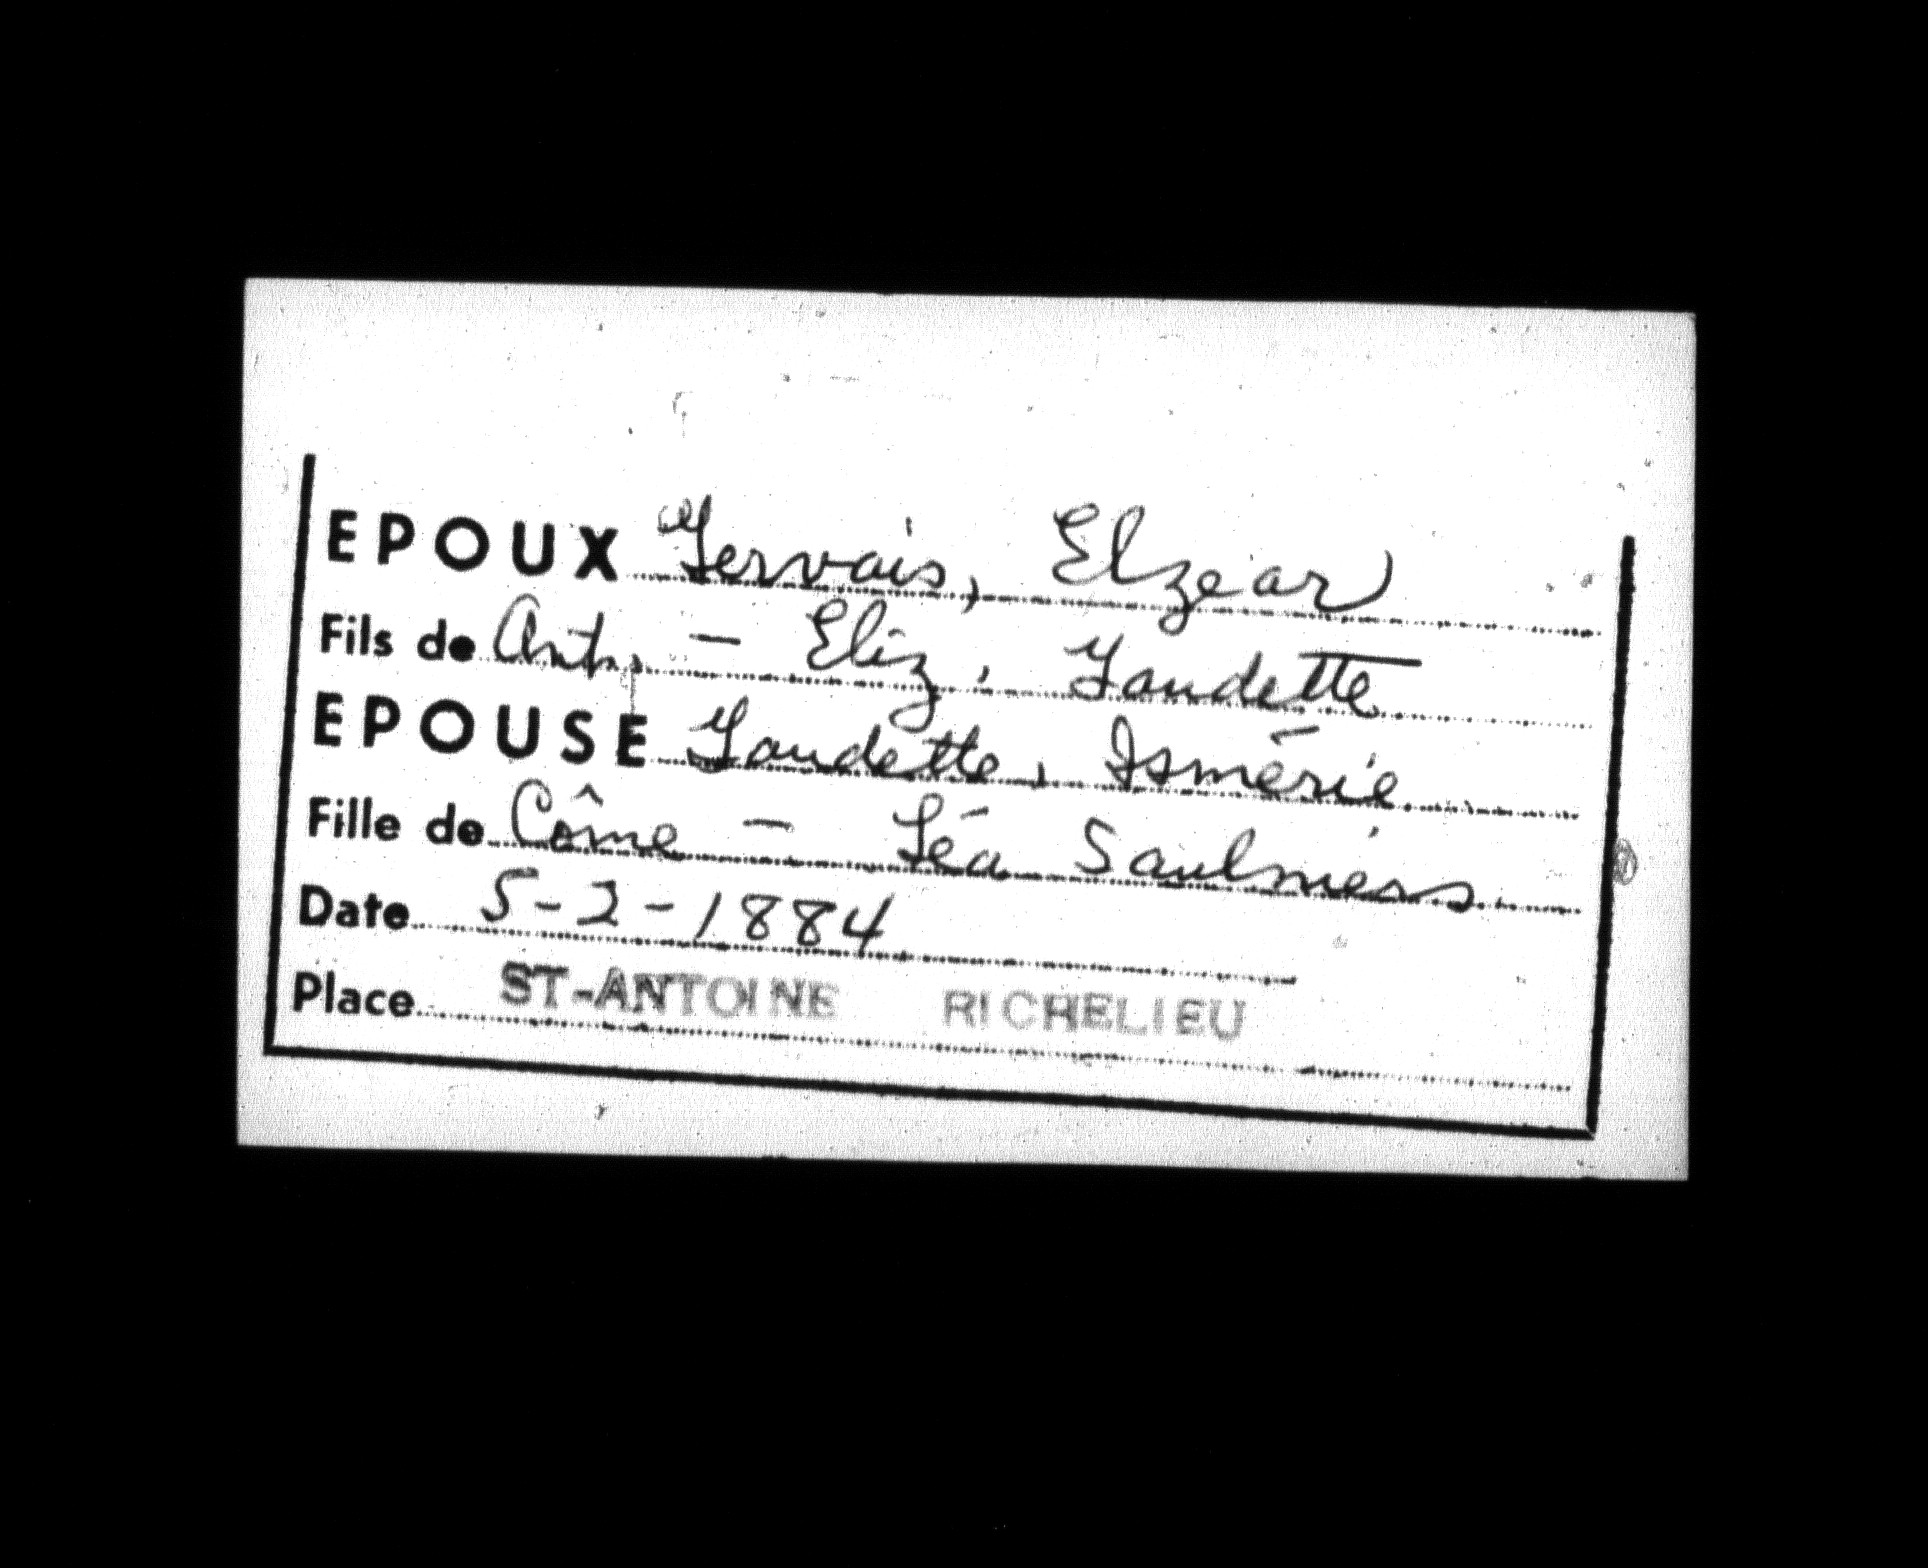 EPOUX Gervais, Elzear
Fils de Ant. - Eliz. Gaudette
EPOUSE Gaudette, Ismérie
Fille de Côme - Léa Saulniers
Date 5-2-1884
Place ST-ANTOINE RICHELIEU